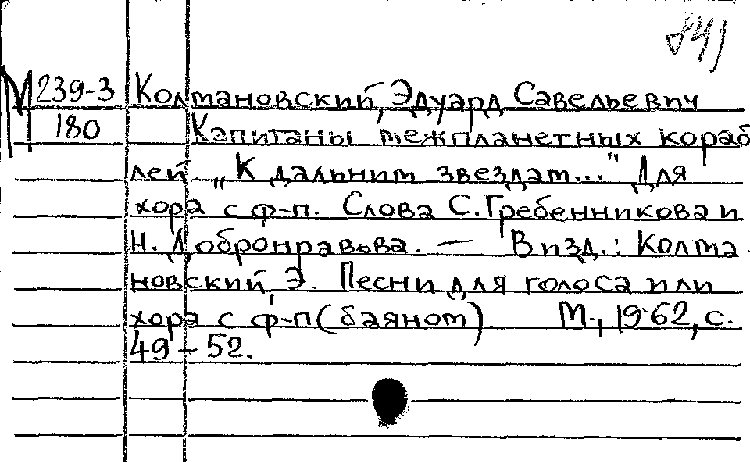 841
М 239-3 Колмановский, Эдуард Савельевич
180 Капитаны межпланетных кораб
лей „К дальним звездам..." Для
хора с ф-п. Слова С. Гребенникова и
Н. Добронравова. — В изд.: Колма
новский, Э. Песни для голоса или
хора с ф-п (баяном) М., 1962, с.
49-52.